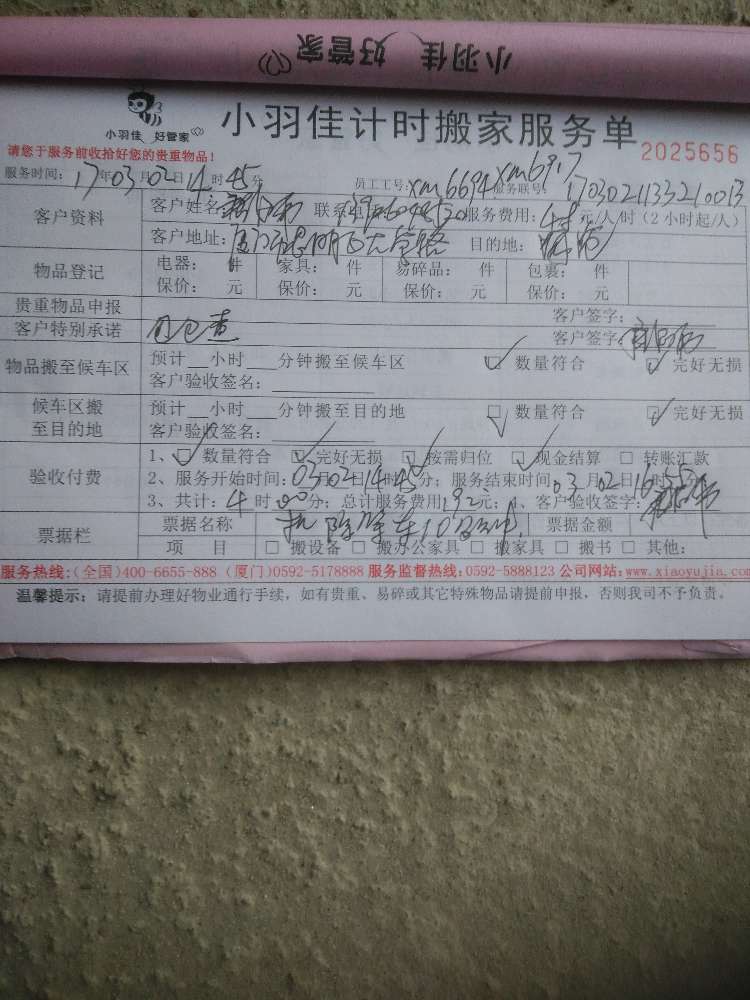 小羽佳 好管家
小羽佳 好管家
小羽佳计时搬家服务单
2025656
请您于服务前收拾好您的贵重物品！
服务时间：17年03月02日14时45分 员工工号：xm6694 xm6917 服务联号：1703021133210013
客户资料
客户姓名： 联系电 服务费用： 元/人/时（2小时起/人）
客户地址： 目的地：
物品登记
电器： 件 家具： 件 易碎品： 件 包裹： 件
保价： 元 保价： 元 保价： 元 保价： 元
贵重物品申报 客户签字：
客户特别承诺 客户签字：
物品搬至候车区
预计__小时___分钟搬至候车区 □ 数量符合 □ 完好无损
客户验收签名：
候车区搬至目的地
预计__小时___分钟搬至目的地 □ 数量符合 □ 完好无损
客户验收签名：
验收付费
1、□ 数量符合 □ 完好无损 □ 按需归位 □ 现金结算 □ 转账汇款
2、服务开始时间：03月02日14时45分；服务结束时间：03月02日16时55分
3、共计：4时00分；总计服务费用192元；4、客户验收签字：
票据栏
票据名称 票据金额
项 目 □ 搬设备 □ 搬办公家具 □ 搬家具 □ 搬书 □ 其他：
服务热线：(全国)400-6655-888 (厦门)0592-5178888 服务监督热线：0592-5888123 公司网站：www.xiaoyujia.com
温馨提示：请提前办理好物业通行手续，如有贵重、易碎或其它特殊物品请提前申报，否则我司不予负责。